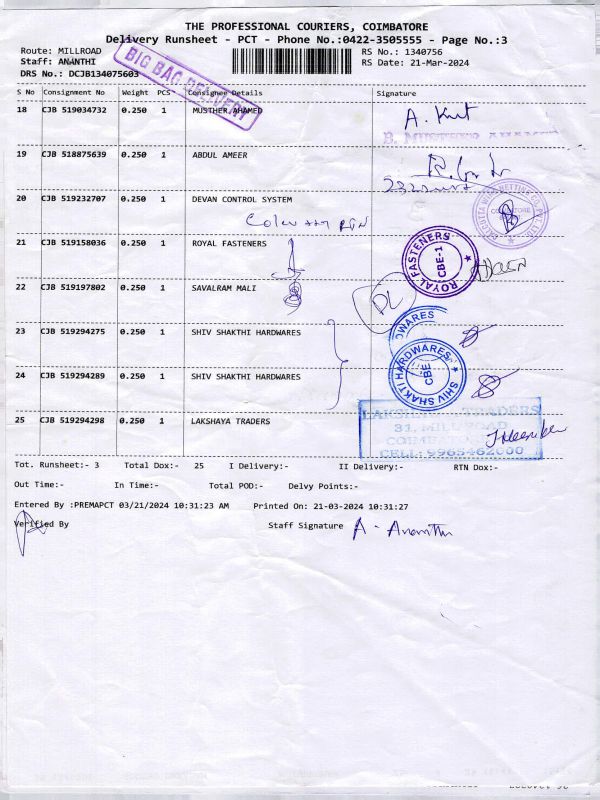 THE PROFESSIONAL COURIERS, COIMBATORE
Delivery Runsheet - PCT - Phone No.:0422-3505555 - Page No.:3
Route: MILLROAD
RS No.: 1340756
Staff: ANANTHI
RS Date: 21-Mar-2024
DRS No.: DCJB134075603
BIG BAG DELIVERY
S No Consignment No Weight PCS Consignee Details Signature
18 CJB 519034732 0.250 1 MUSTHER AHAMED
B. MUSTHER AHAMED
19 CJB 518875639 0.250 1 ABDUL AMEER
20 CJB 519232707 0.250 1 DEVAN CONTROL SYSTEM
21 CJB 519158036 0.250 1 ROYAL FASTENERS
ROYAL FASTENERS
CBE-1
22 CJB 519197802 0.250 1 SAVALRAM MALI
DL
23 CJB 519294275 0.250 1 SHIV SHAKTHI HARDWARES
DWARES
24 CJB 519294289 0.250 1 SHIV SHAKTHI HARDWARES
SHIV SHAKTI HARDWARES
CBE
25 CJB 519294298 0.250 1 LAKSHAYA TRADERS
LAKSHAYA TRADERS
31, MILL ROAD
Tot. Runsheet:- 3 Total Dox:- 25 I Delivery:- II Delivery:- RTN Dox:-
Out Time:- In Time:- Total POD:- Delvy Points:-
Entered By :PREMAPCT 03/21/2024 10:31:23 AM Printed On: 21-03-2024 10:31:27
Verified By Staff Signature A. Ananthi